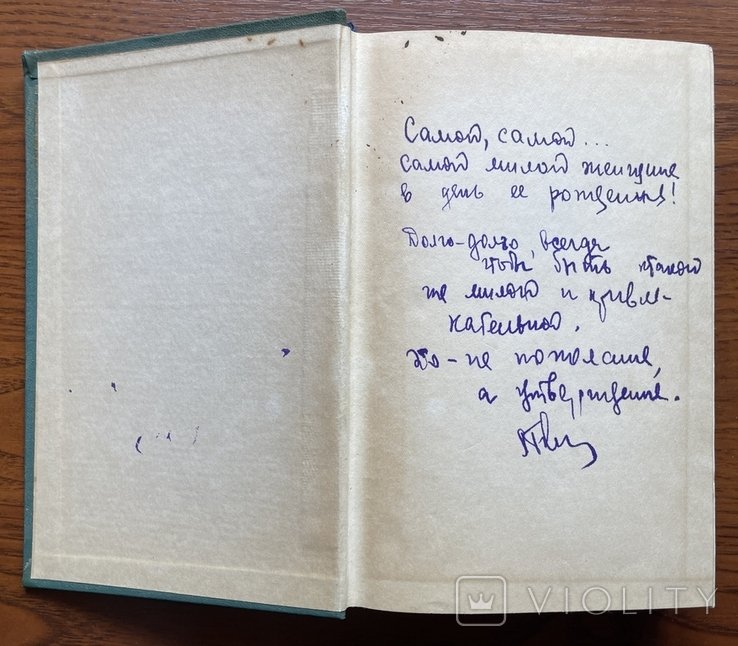 Самой, самой...
самой милой женщине
в день ее рождения!
Долго-долго, всегда
чтобы быть такой
же милой и привле-
кательной.
Это - не пожелание,
а утверждение.
VIOLITY